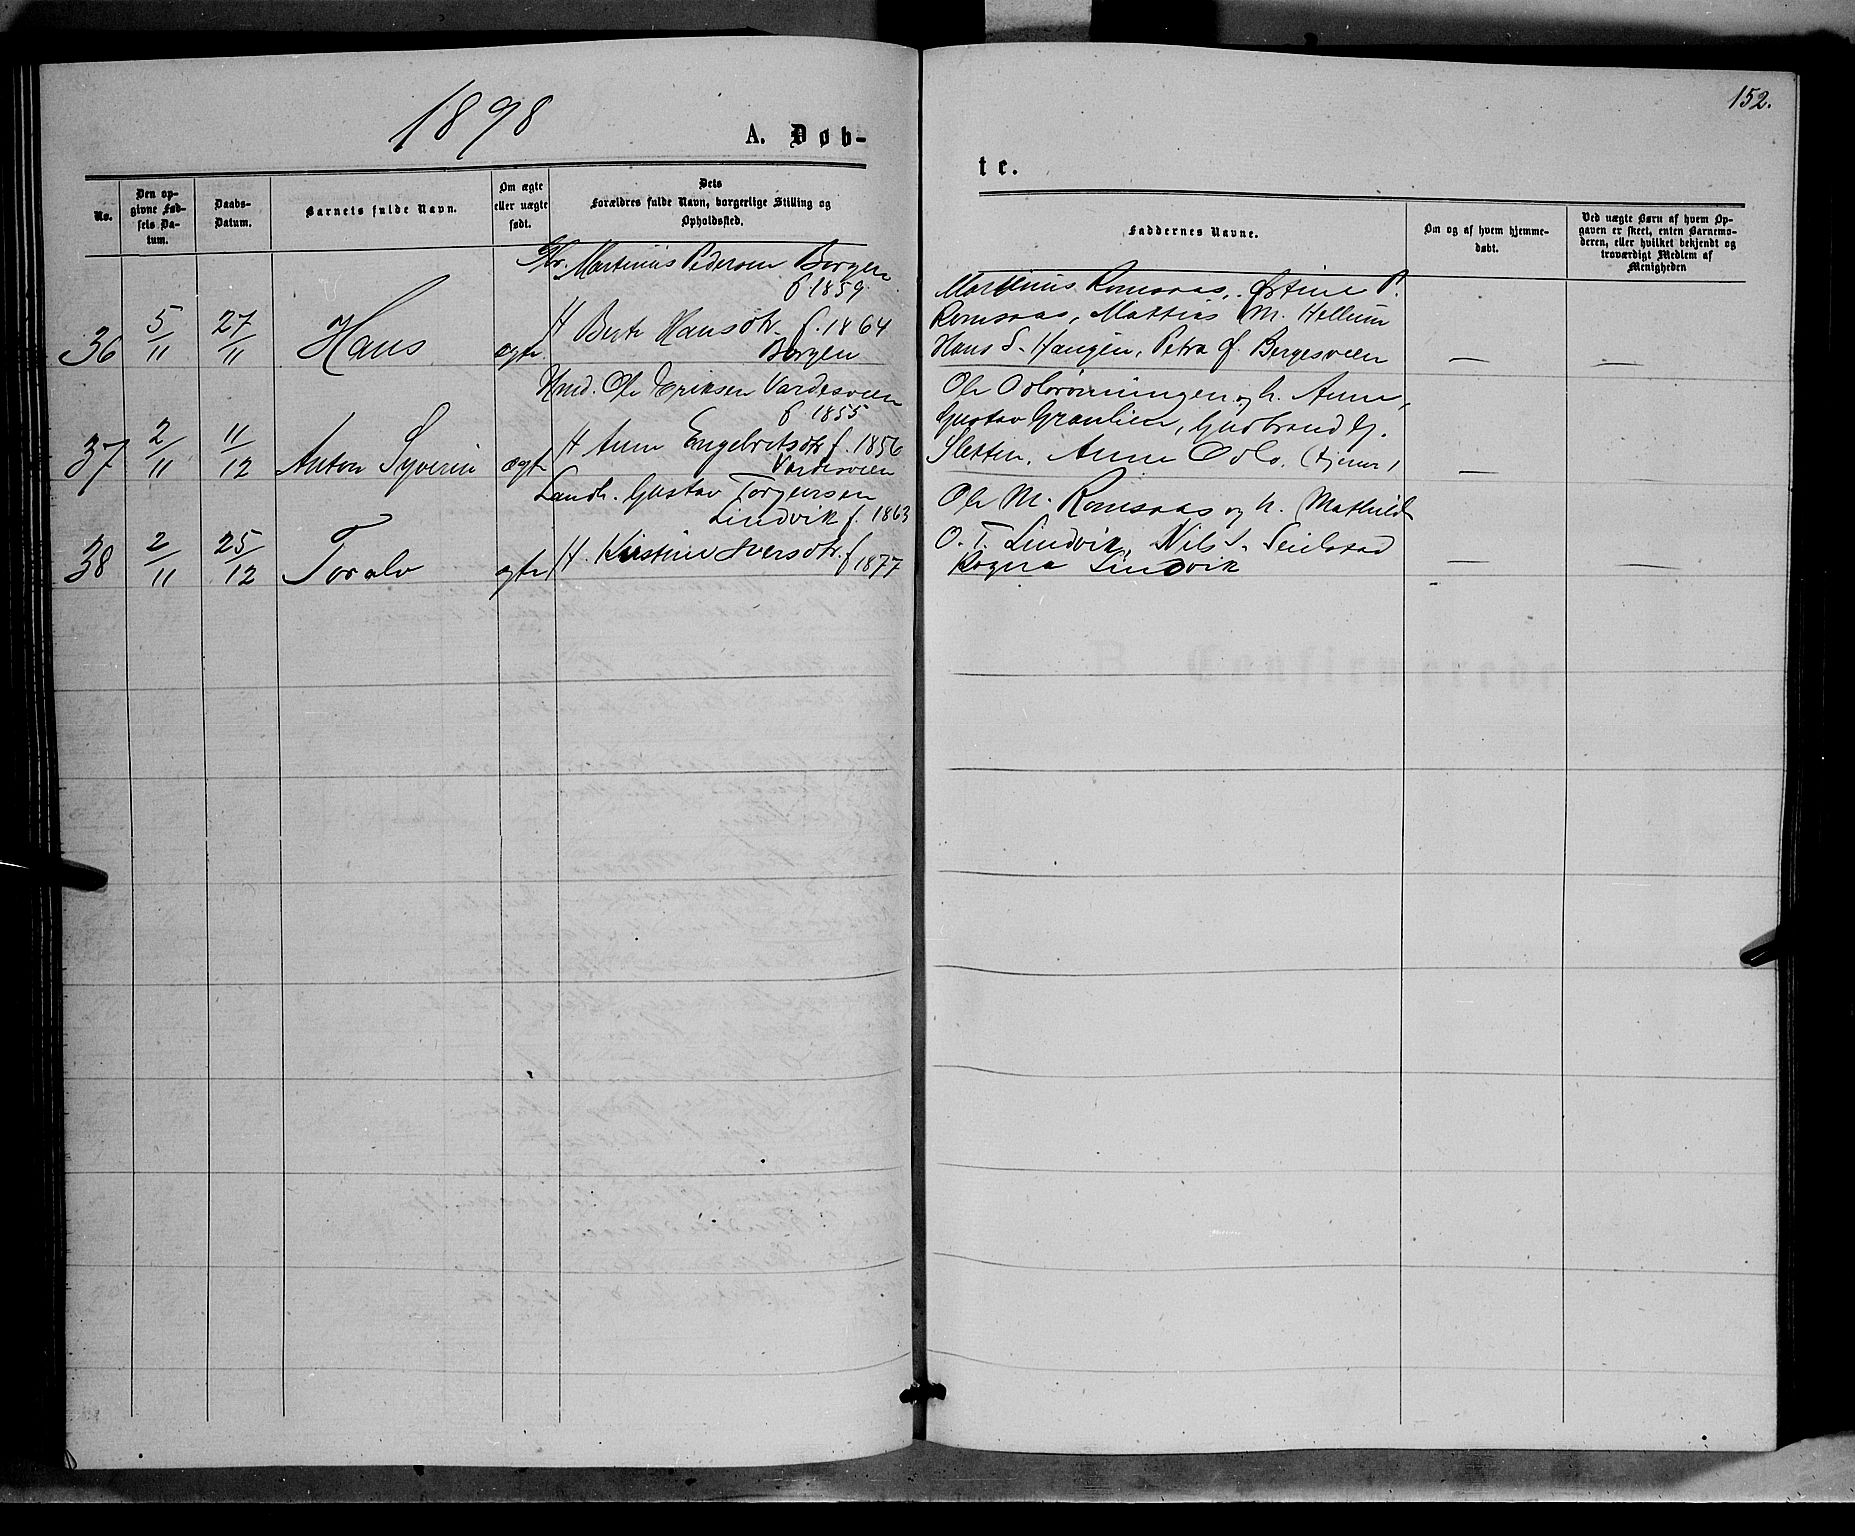 1898
152.
A. Døb-
te.
No.
Den op-
givne Fød-
sels Da-
tum.
Daabs-
Datum.
Barnets fulde Navn.
Om ægte
eller uægte
født.
Dets
Forældres fulde Navn, borgerlige Stilling og
Opholdssted.
Faddernes Navne.
Om og af hvem hjemme-
døbt.
Ved uægte Børn af hvem Op-
gaven er skeet, enten Barnemo-
deren, eller hvilket bekjendt og
troværdigt Medlem af
Menigheden
36
5/11
27/11
Hans
ægte
Martinius Pedersen Borgen
f 1859
H Berte Hansdtr. f. 1864
Borgen
Martinius Romsaas, P.
Romsaas, Mattias M. Hellum
Hans S. Haugen, Petra J. Bergesveen
—
—
37
2/11
11/12
Anton Syverin
ægte
Hmd. Ole Eriksen Vardesveen
f 1855
H Anne Engebretsdtr f. 1856
Vardesveen
Ole Odlorønningen og h. Anne,
Gustav Granlien, Gudbrand G.
Sletten, Anne Odlo. (tjener)
—
—
38
2/11
25/12
Toralv
ægte
Landh. Gustav Torgersen
Lindvik f. 1863
H. Kirstine Iversdtr. f 1877
Ole M. Romsaas og h. Mathilde
O. T. Lindvik, Nils S. Seielstad
Ragna Lindvik
—
—